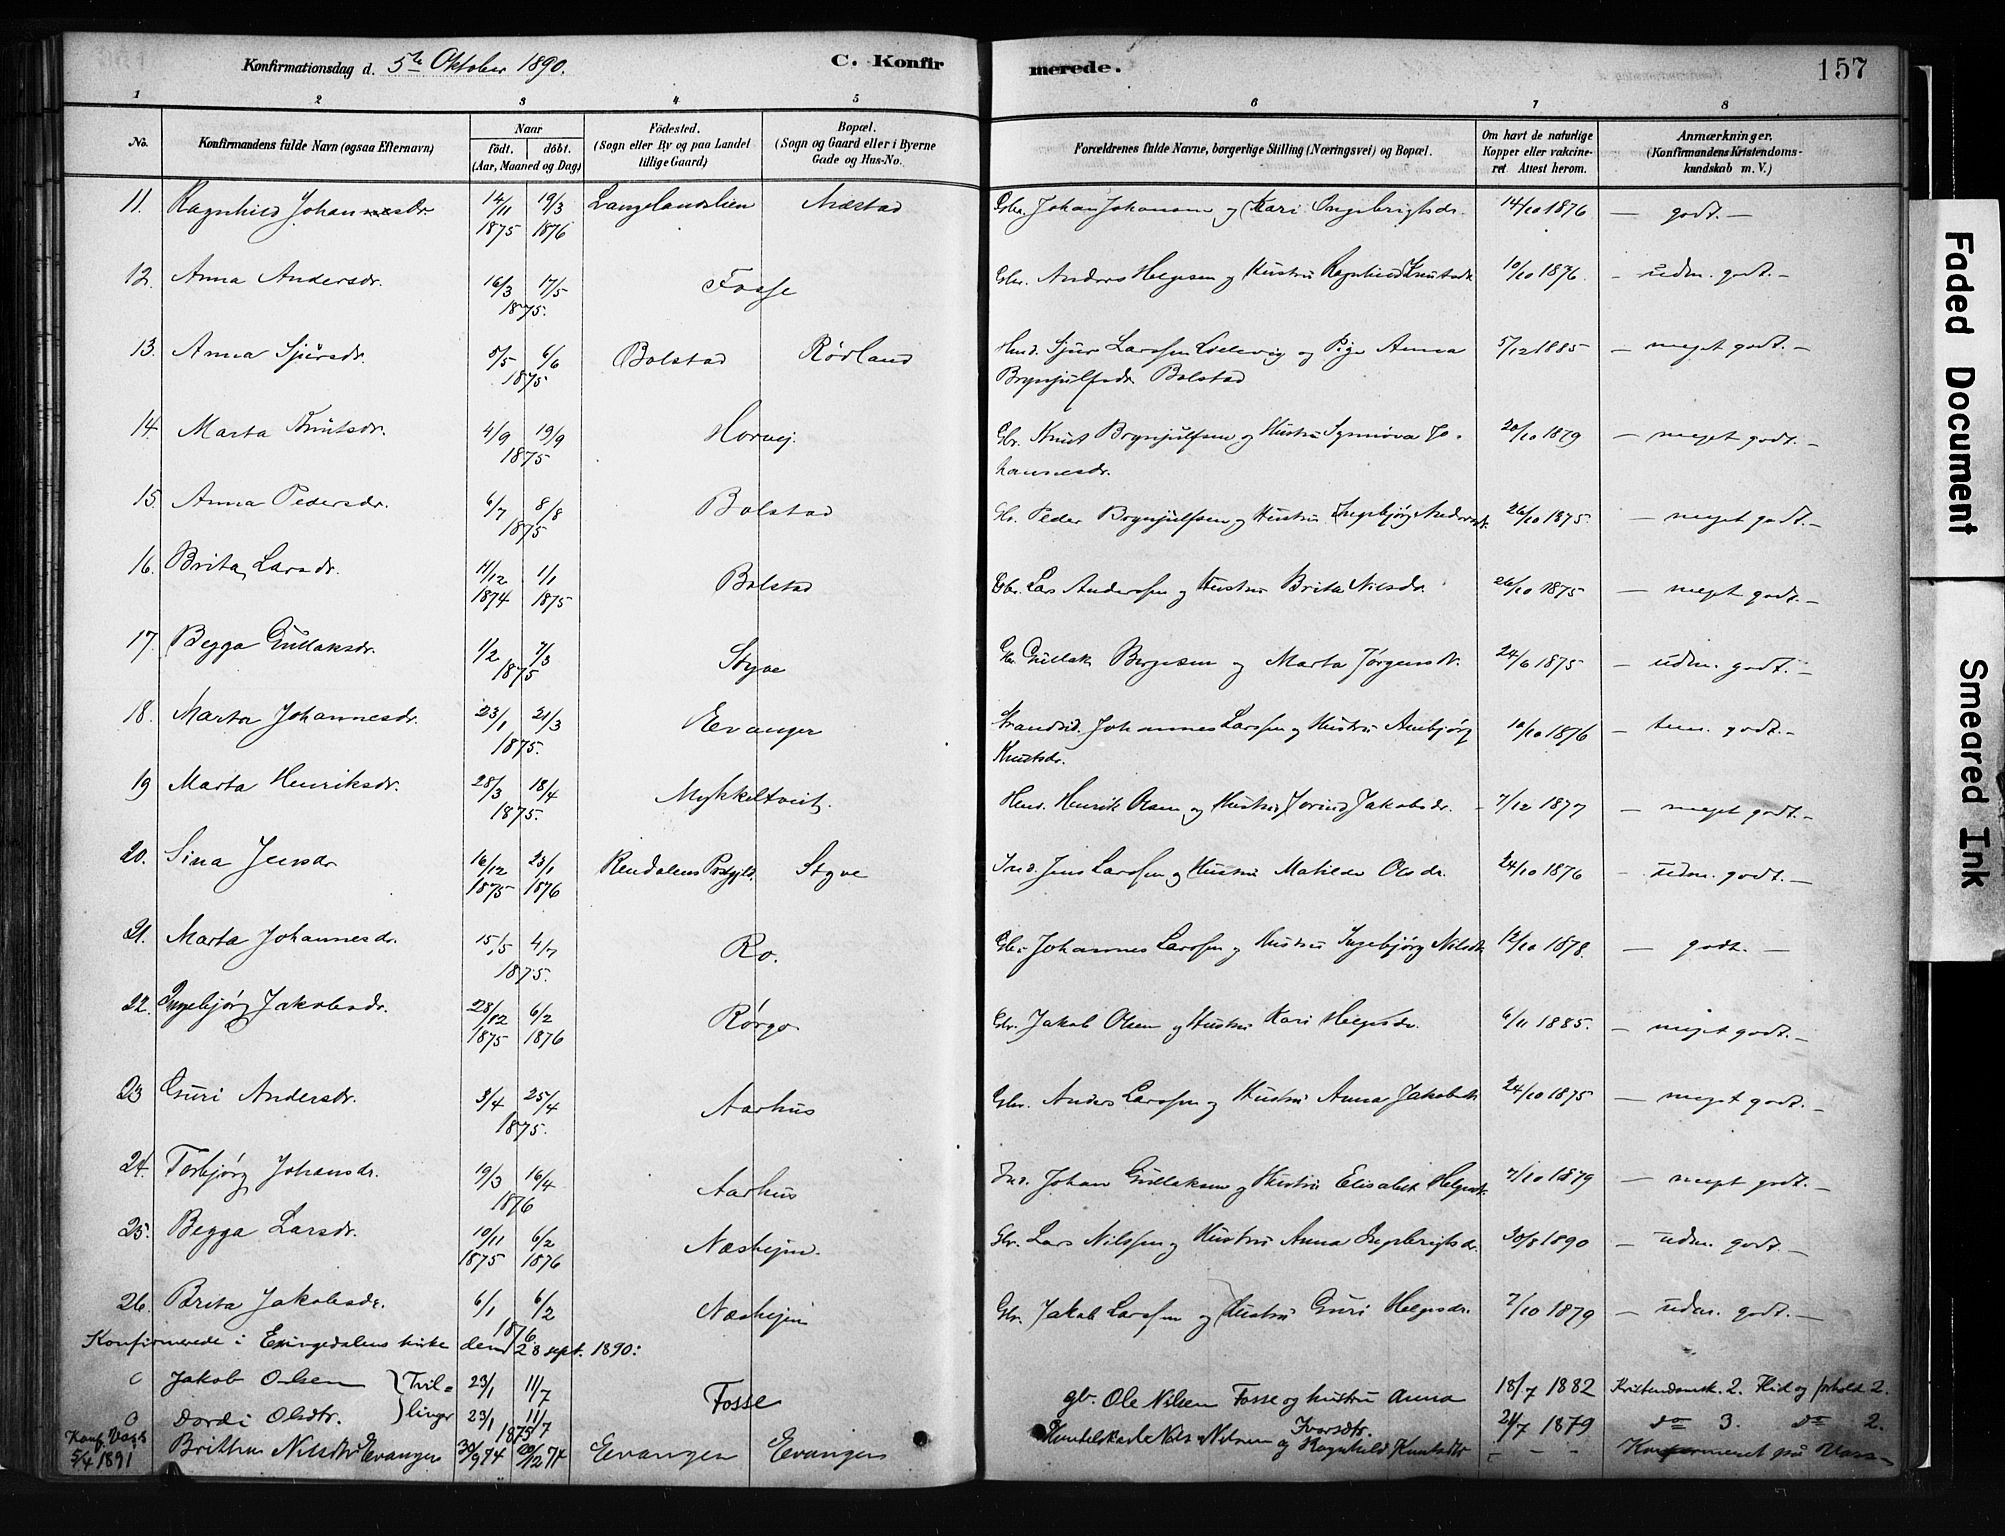 Konfirmationsdag d. 5te Oktober 1890.
C. Konfir
merede.
157
1 2 3 4 5 6 7 8
No.
Konfirmandens fulde Navn (ogsaa Efternavn)
Naar
födt. döbt.
(Aar, Maaned og Dag)
Födested.
(Sogn eller By og paa Landet tillige Gaard)
Bopæl.
(Sogn og Gaard eller i Byerne Gade og Hus-No.
Forældrenes fulde Navne, borgerlige Stilling (Næringsvei) og Bopæl.
Om havt de naturlige Kopper eller vakcineret Attest herom.
Anmærkninger.
(Konfirmandens Kristendomskundskab m. V.)
11. Ragnhild Johansdr. 14/11 1875 19/3 1876 Langelandslien Næstad Gbr. Johan Johansen og Kari Ingebrigtsdr. 14/10 1876 — godt. —
12. Anna Andersdr. 16/3 17/5 1875. Fosse Gbr. Anders Helgesen og Hustru Ragnhild Knutsdr. 10/10 1876. — udm. godt. —
13. Anna Sjursdr. 5/5 6/6 1875 Bolstad Rödland Sjur Larssen og Pige Anna 5/12 1885 — meget godt. —
Brynjulfsdr. Bolstad
14. Marta Knutsdr. 4/9 19/9 1875 Horvej. Gbr. Knut Brynjulfsen og Hustru Synnöva Jo- 20/10 1879 — meget godt. —
hannesdr.
15. Anna Pedersdr. 6/7 8/8 1875 Bolstad Peder Brynjulfsen og Hustru Ingebjörg Andersdr. 26/10 1875. — meget godt. —
16. Brita Larsdr. 11/12 1874 1/1 1875 Bolstad Gbr. Lars Anderssen og Hustru Brita Nilsdr. 26/10 1875 — meget godt. —
17. Begga Gullaksdr. 1/2 7/3 1875 Styve Gbr. Gullak Bergesen og Marta Jörgensdr. 24/6 1875 — udm. godt. —
18. Marta Johannesdr. 23/1 21/3 1875. Evanger Strandsid. Johannes Larssen og Hustru Anbjörg 10/10 1876 — tem. godt. —
Knutsdr.
19 Marta Henriksdr. 28/3 18/4 1875. Mykkeltveit. Hmd. Henrik Olsen og Hustru Jorind Jakobsdr. 7/12 1877 — meget godt. —
20. Sina Jensdr 16/12 1875 23/1 1876 Rendalens Prstgjld. Styve Ind. Jens Larssen og Hustru Matilde Olsdr. 24/10 1876 — udm. godt. —
21. Marta Johannesdr. 15/5 4/7 1875. Ro. Gbr. Johannes Larssen og Hustru Ingebjörg Nilsdr. 12/10 1878. — godt. —
22. Ingebjörg Jakobsdr. 28/12 1875 6/2 1876 Rörgo Gbr. Jakob Olsen og Hustru Kari Helgesdr. 6/11 1885. — meget godt. —
23 Guri Andersdr. 3/4 25/4 1875. Aarhus Gbr. Anders Larssen og Hustru Anna Jakobsdr. 24/10 1875 — meget godt. —
24. Torbjörg Johansdr. 19/3 16/4 1876 Aarhus Ind. Johan Gullaksen og Hustru Elisabet Helgesdr. 7/10 1879 — meget godt. —
25. Begga Larsdr. 10/11 1875 6/2 1876 Næshejm. Gbr. Lars Nilssen og Hustru Anna Ingebrigtsdr. 30/8 1890 — udm. godt. —
26. Brita Jakobsdr. 6/1 6/2 1876. Næshejm Gbr. Jakob Larssen og Hustru Guri Helgesdr. 7/10 1879 — udm. godt. —
Konfirmerede i Exingedalens kirke den 28 sept. 1890:
0 Jakob Olsen } Tvil= 23/1 11/7 Fosse gbr. Ole Nilsen Fosse og hustru Anna 18/7 1882 Kristendomsk. 2. Flid og forhold 2.
0 Dordi Olsdtr. } linger 23/1 11/7 1875 Ivarsdtr. 24/7 1879 do 3. do 2.
Konf. Voss 5/4 1891 Britha Nilsdtr Evanger 30/9 74 20/12 74 Evanger Evanger Handelskarl Nils Nilsen og Ragnhild Knutsdtr - - - Konfirmeret på Voss
Faded Document
Smeared Ink